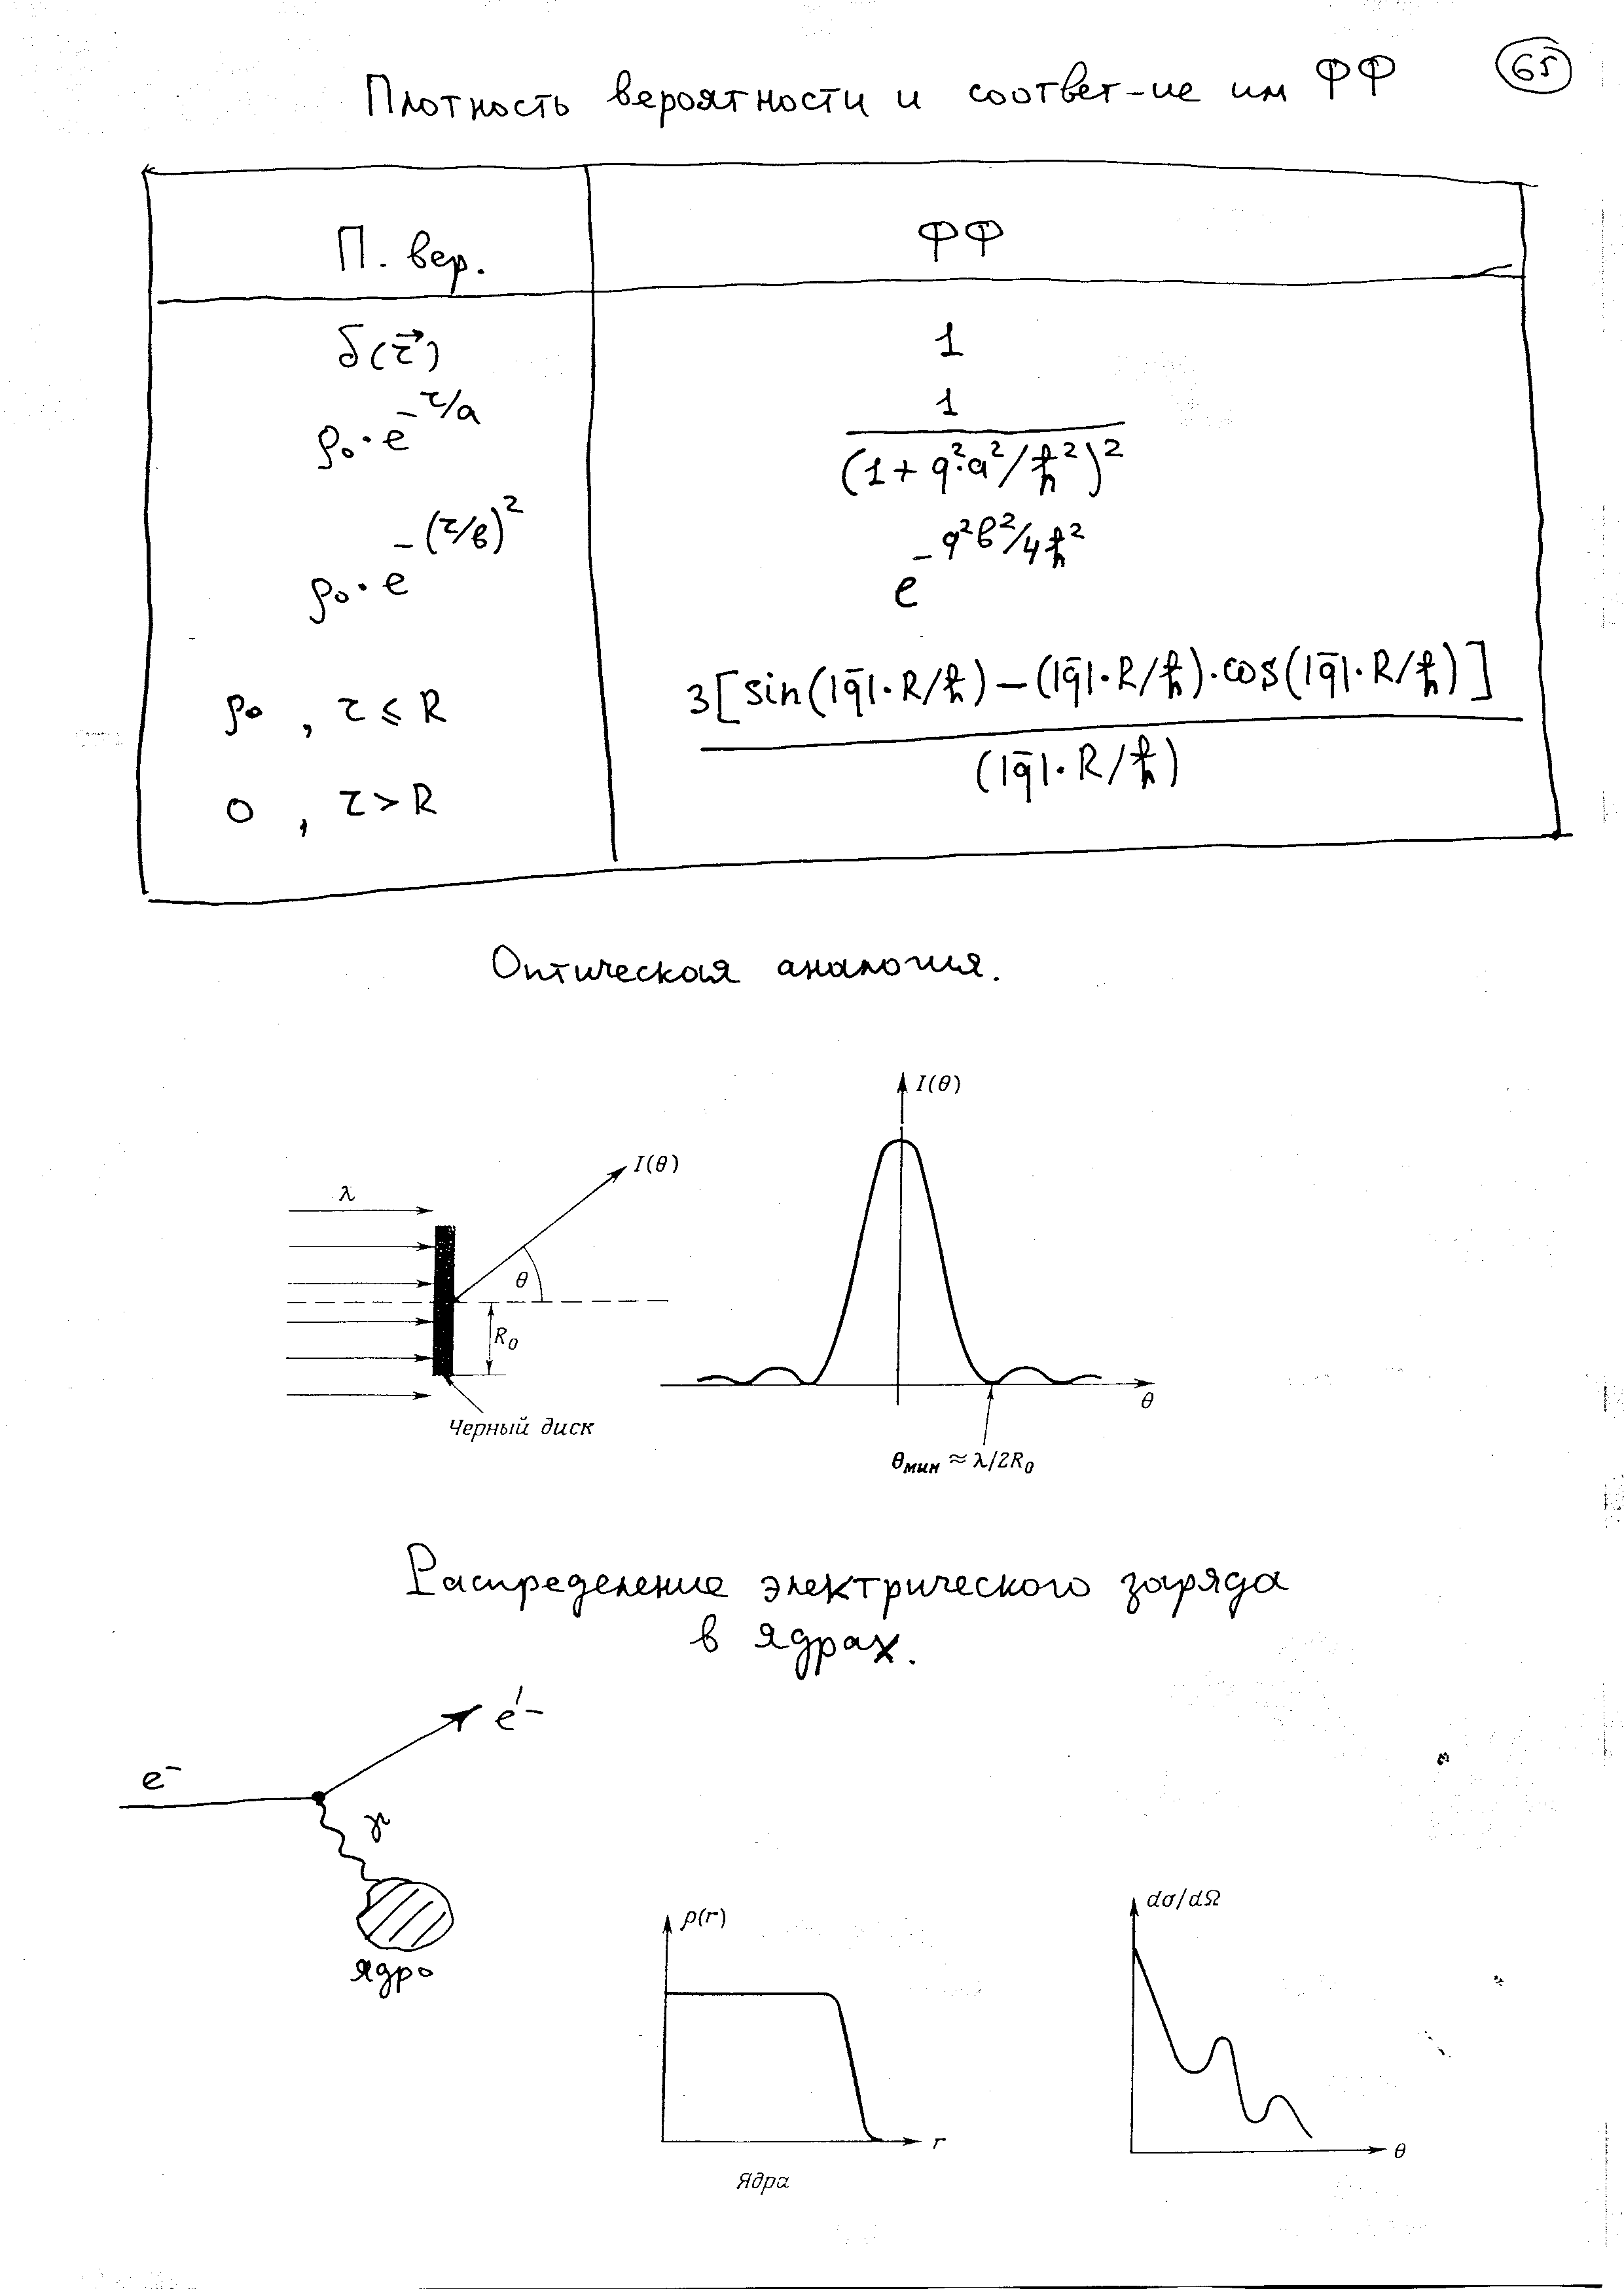 Плотность вероятности и соответ-ие им ФФ
65
П. вер.
ФФ
δ(r⃗)
1
ρ₀·e^(-r/a)
1/(1+q²·a²/ħ²)²
ρ₀·e^(-(r/b)²)
e^(-q²b²/4ħ²)
ρ₀ , r ≤ R
3[sin(|q̄|·R/ħ)−(|q̄|·R/ħ)·cos(|q̄|·R/ħ)]
(|q̄|·R/ħ)
0 , r > R
Оптическая аналогия.
I(θ)
I(θ)
λ
θ
R₀
θ
Черный диск
θмин ≈ λ/2R₀
Распределение электрического заряда
в ядрах.
e'⁻
e⁻
γ
ядро
ρ(r)
dσ/dΩ
r
θ
Ядра